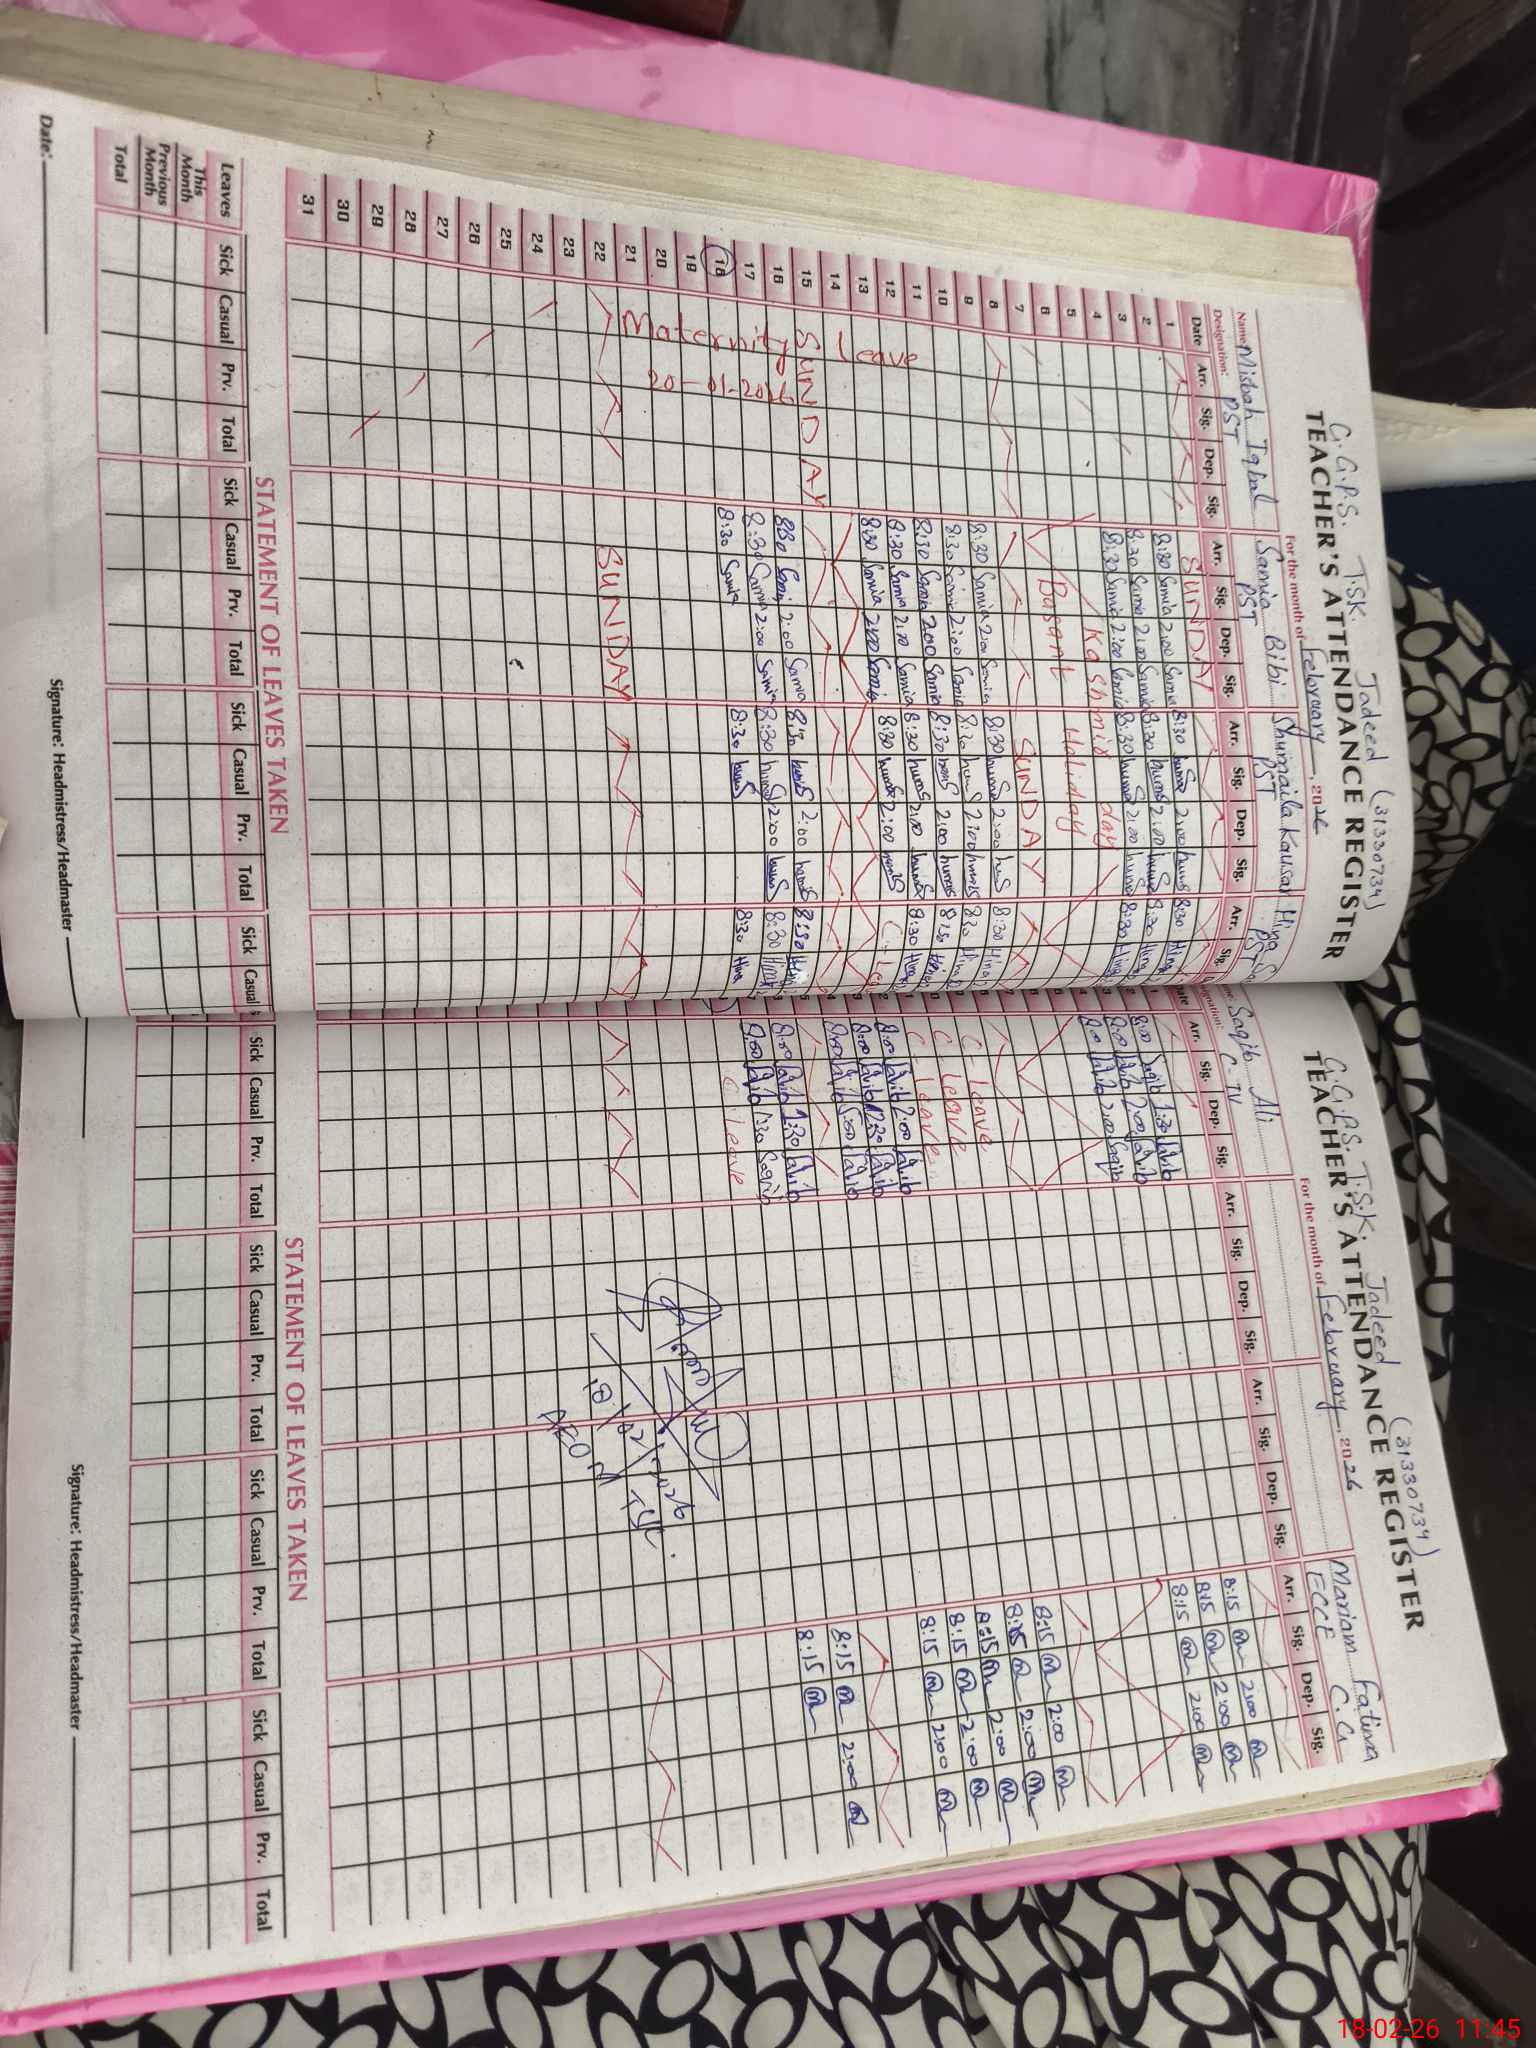 G.G.P.S. T.SK. Jadeed (31330734)
TEACHER'S ATTENDANCE REGISTER
For the month of February, 2026
Name: Misbah Iqbal Samia Bibi Shumaila Kausar Hina
Designation: PST PST PST PST
Date Arr. Sig. Dep. Sig. Arr. Sig. Dep. Sig. Arr. Sig. Dep. Sig. Arr. Sig.
1 SUNDAY
2 8:30 Samia 2:00 Samia 8:30 2:00 8:30 Hina
3 8:30 Samia 2:00 Samia 8:30 2:00 8:30 Hina
4 8:30 Samia 2:00 Samia 8:30 2:00 8:30 Hina
5 Kashmir day
6 Basant Holiday
7
8 SUNDAY
9 8:30 Samia 2:00 Samia 8:30 2:00 8:30 Hina
10 8:30 Samia 2:00 Samia 8:30 2:00 8:30 Hina
11 8:30 Samia 2:00 Samia 8:30 2:00 8:30
12 8:30 Samia 2:00 Samia 8:30 2:00 8:30 Hina
13 8:30 Samia 2:00 Samia 8:30 2:00 C. Lea
14
15 SUNDAY
16 8:30 Samia 2:00 Samia 8:30 2:00 8:30 Hina
17 8:30 Samia 2:00 Samia 8:30 2:00 8:30 Hina
18 8:30 Samia 8:30 8:30 Hina
19
20
21
22 SUNDAY
23
24
25
26
27
28
29
30
31
Maternity Leave
20-01-2026
STATEMENT OF LEAVES TAKEN
Leaves Sick Casual Prv. Total Sick Casual Prv. Total Sick Casual Prv. Total Sick Casual
This Month
Previous Month
Total
Date: Signature: Headmistress/Headmaster
G.G.P.S. T.S.K. Jadeed (31330734)
TEACHER'S ATTENDANCE REGISTER
For the month of February, 2026
Saqib Ali Mariam Fatima
C-IV ECCE C.G
Arr. Sig. Dep. Sig. Arr. Sig. Dep. Sig. Arr. Sig. Dep. Sig. Arr. Sig. Dep. Sig.
8:00 Saqib 1:30 Saqib 8:15 2:00
8:00 Saqib 2:00 Saqib 8:15 2:00
8:00 Saqib 2:00 Saqib 8:15 2:00
C-leave 8:15 2:00
C-leave 8:15 2:00
C-leave 8:15 2:00
8:00 Saqib 2:00 Saqib 8:15 2:00
8:00 Saqib 1:30 Saqib 8:15 2:00
8:00 Saqib 5:00 Saqib
8:00 Saqib 1:30 Saqib 8:15 2:00
8:00 Saqib 1:30 Saqib 8:15
C. Leave
18/02/2026
STATEMENT OF LEAVES TAKEN
Sick Casual Prv. Total Sick Casual Prv. Total Sick Casual Prv. Total Sick Casual Prv. Total
Signature: Headmistress/Headmaster
18-02-26 11:45